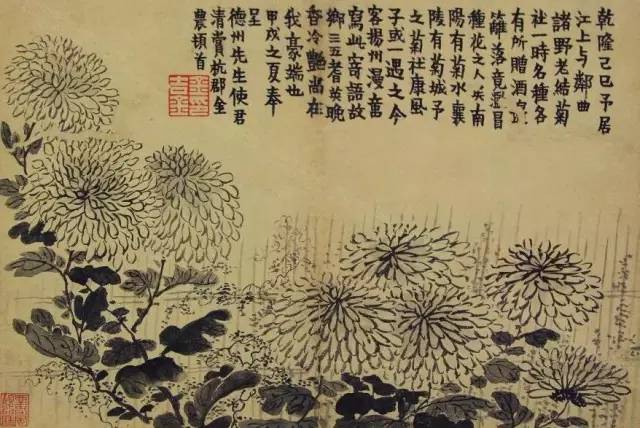 乾隆己巳予居
江上与鄰曲
諸野老結菊
社一時名種各
有所贈酒
籬落竟冒
種花之人矣南
陽有菊水襄
陵有菊城予
之菊社康風
子或一遇之今
客揚州漫
寫此寄語故
鄉三五耆英晚
香冷艷尚在
我豪端也
甲戌之夏奉
呈
德州先生使君
清賞杭郡金
農頓首